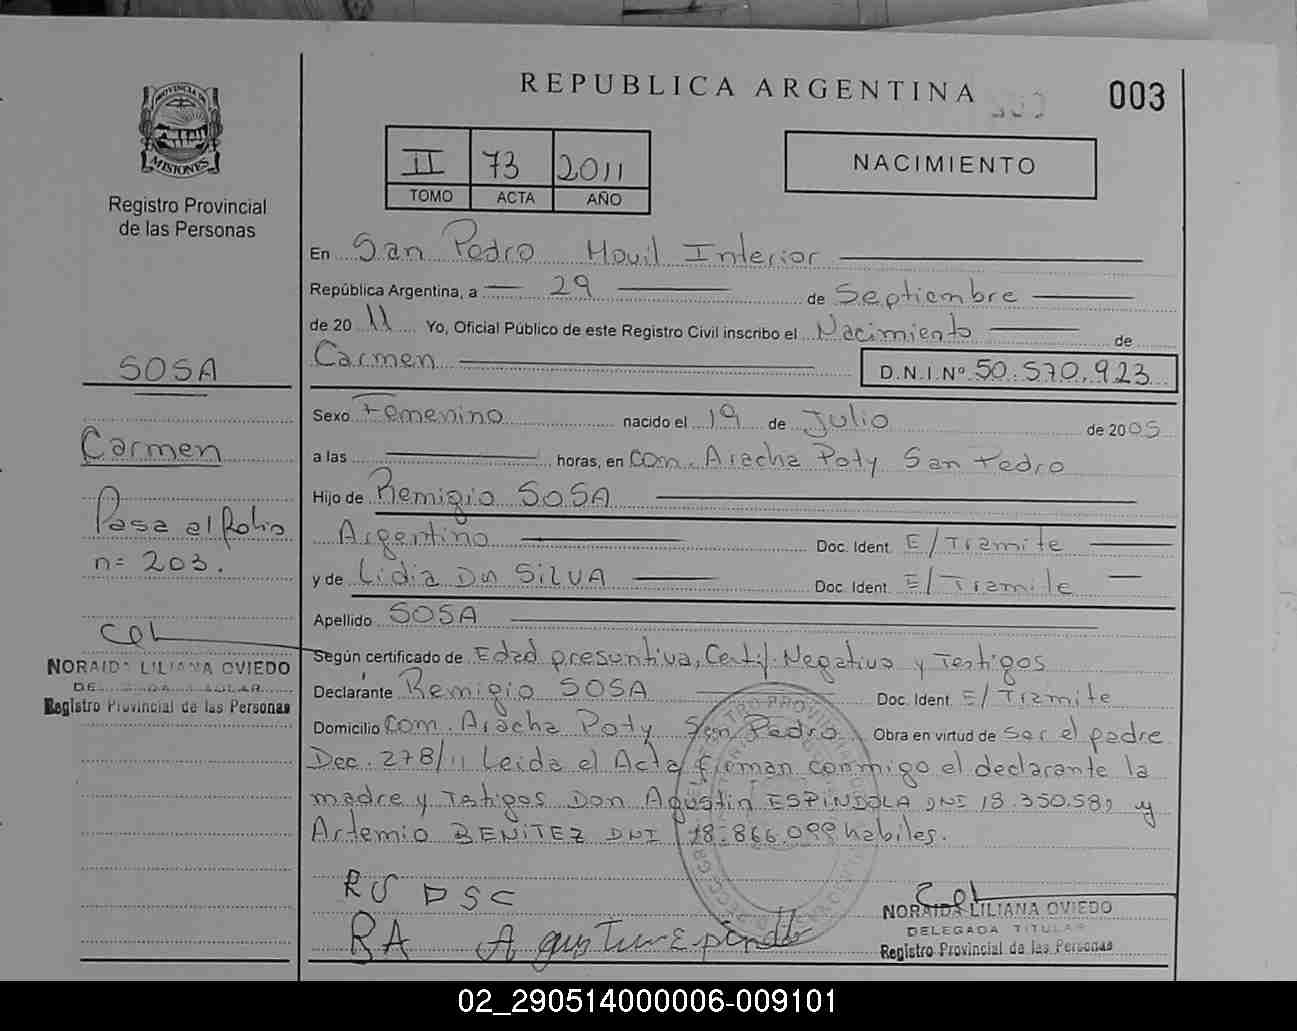 REPUBLICA ARGENTINA
003
PROVINCIA DE
MISIONES
Registro Provincial
de las Personas
II 73 2011
TOMO ACTA AÑO
NACIMIENTO
En San Pedro Movil Interior
República Argentina, a 29 de Septiembre
de 2011 Yo, Oficial Público de este Registro Civil inscribo el Nacimiento de
Carmen D.N.I.Nº 50.570.923
Sexo Femenino nacido el 19 de Julio de 2005
a las horas, en Com. Aracha Poty San Pedro
Hijo de Remigio SOSA
Argentino Doc. Ident. E/Tramite
y de Lidia Da SILVA Doc. Ident. E/Tramite
Apellido SOSA
Según certificado de Edad presuntiva, Certif. Negativo y Testigos
Declarante Remigio SOSA Doc. Ident. E/Tramite
Domicilio Com. Aracha Poty San Pedro Obra en virtud de Ser el padre
Dec. 278/11 Leida el Acta firman conmigo el declarante la
madre y Testigos Don Agustin ESPINDOLA DNI 18.350.58 y
Artemio BENITEZ DNI 18.866.099 habiles.
RS DSC
RA Agustin Espindola
NORAIDA LILIANA OVIEDO
DELEGADA TITULAR
Registro Provincial de las Personas
SOSA
Carmen
Pasa al folio
n= 203.
NORAIDA LILIANA OVIEDO
Registro Provincial de las Personas
02_290514000006-009101